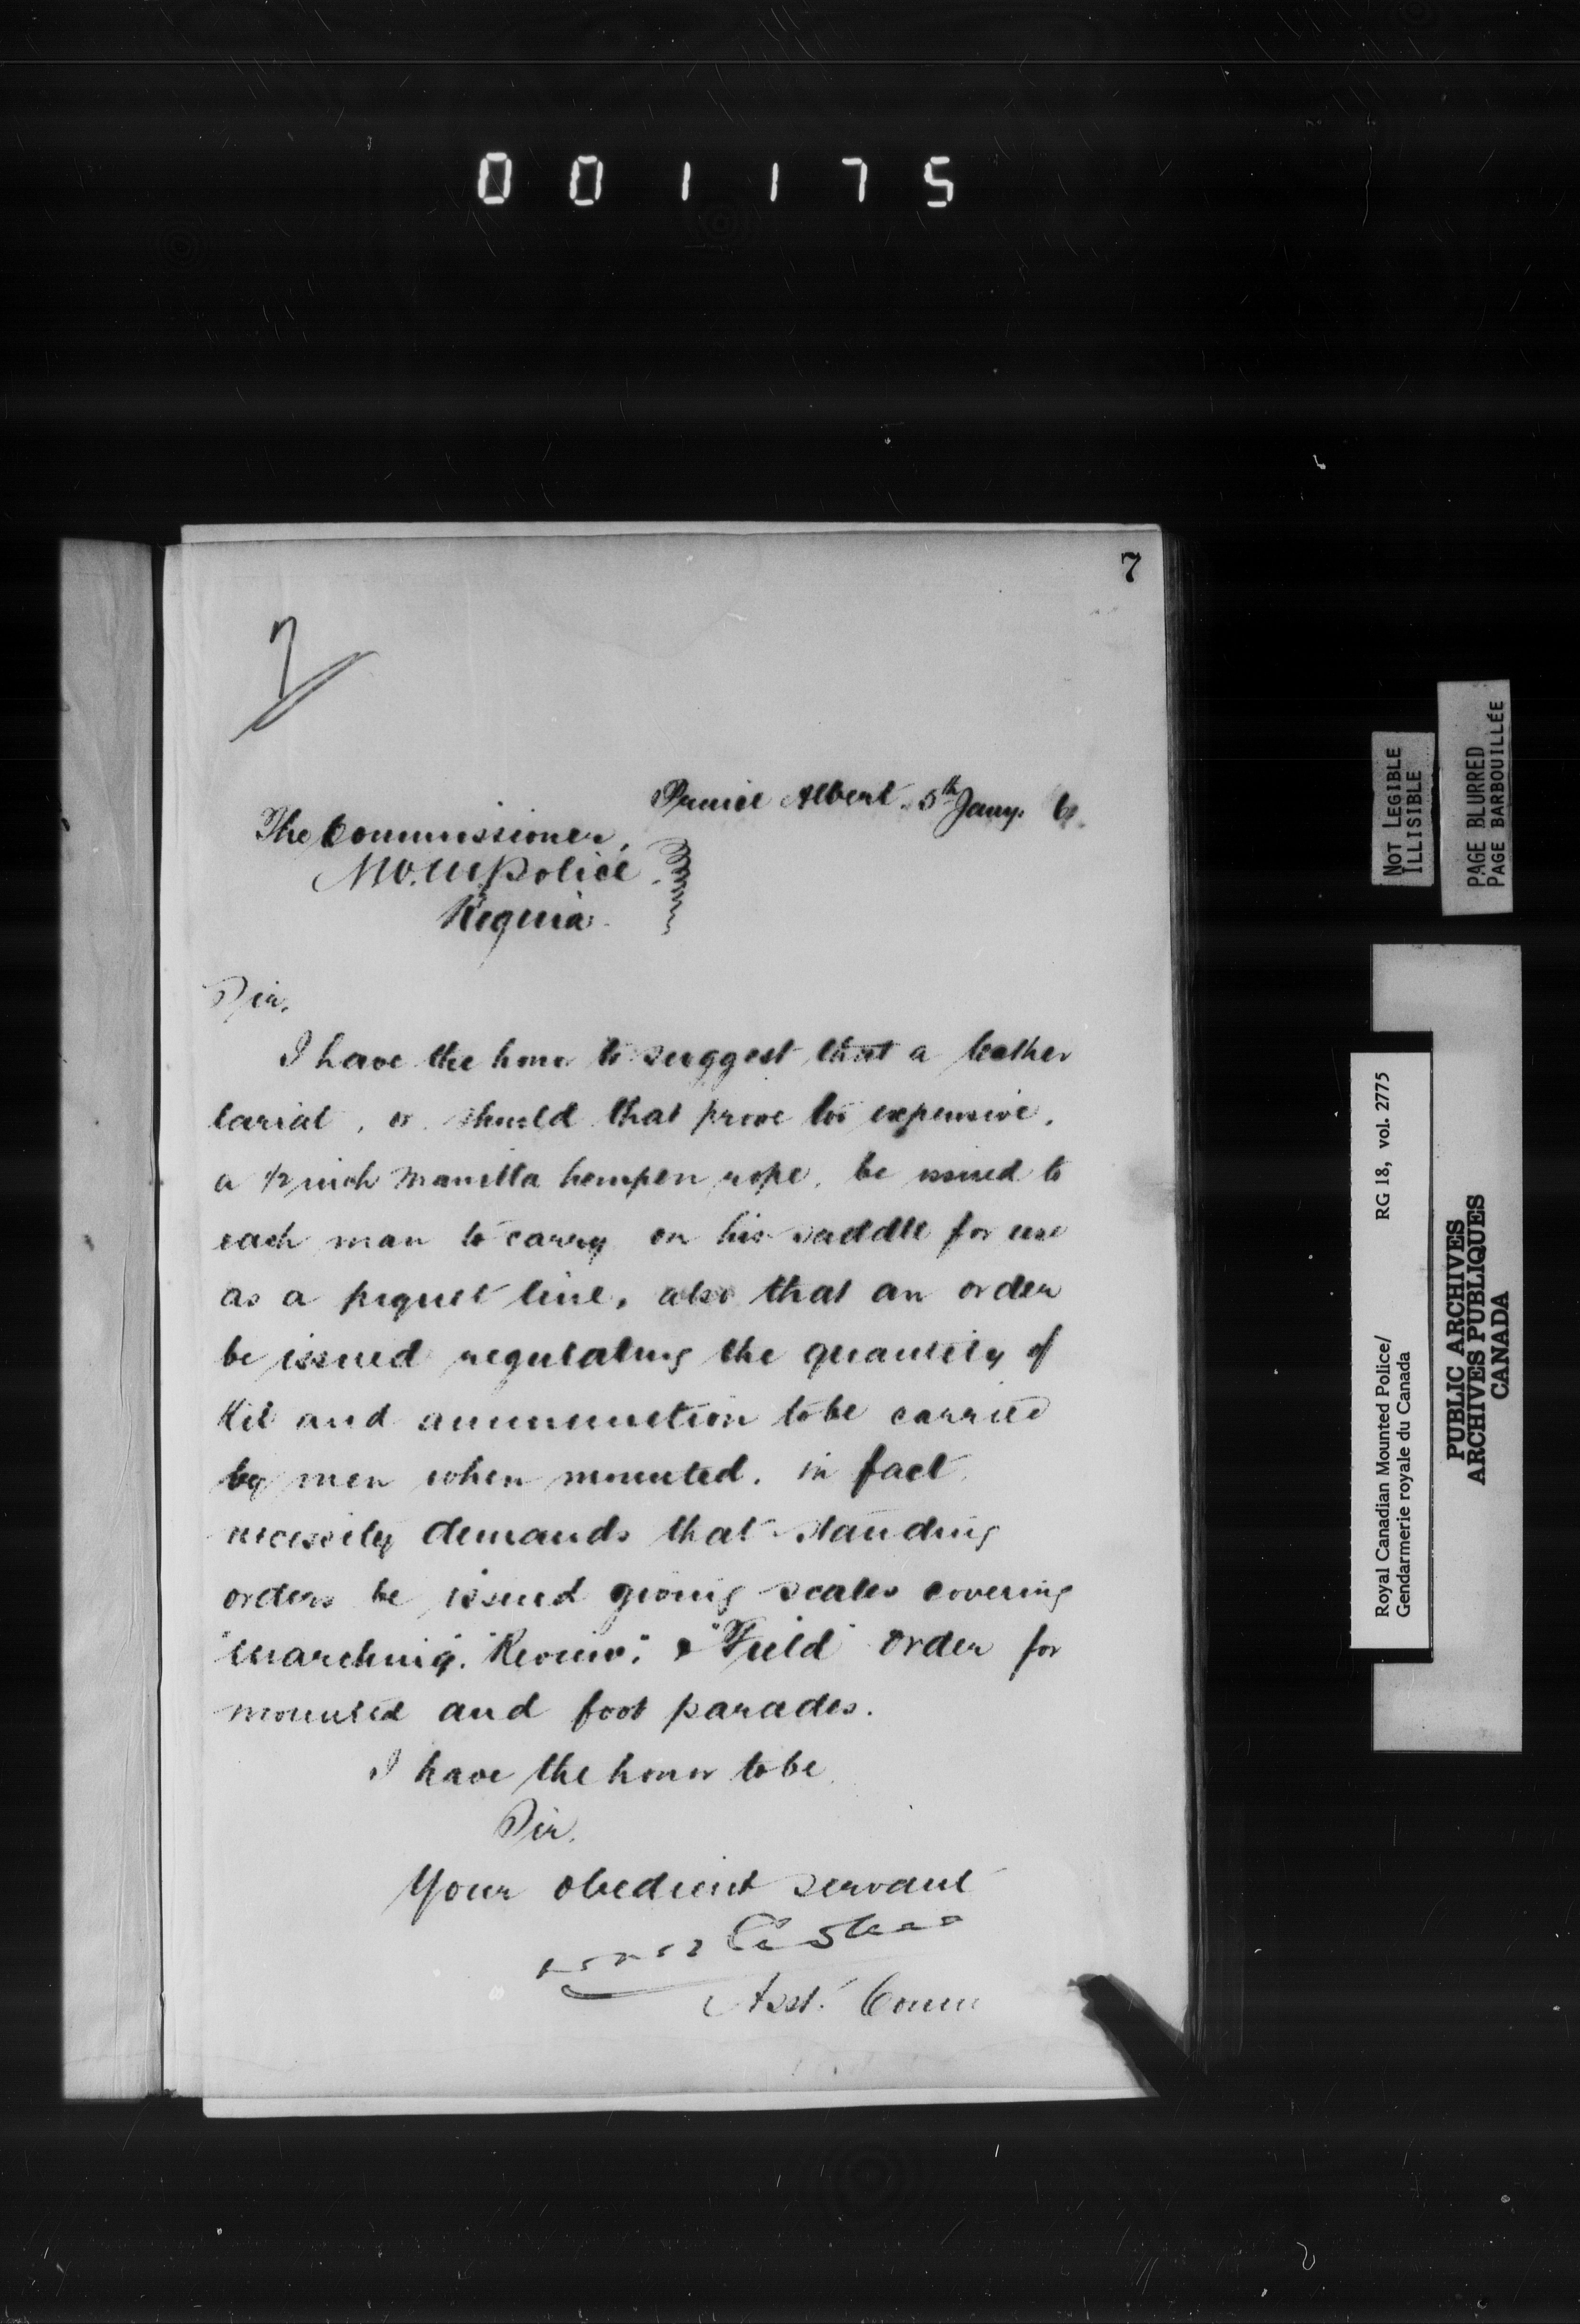 001175
7
7
Prince Albert. 5th Jany. 6.
The Commissioner,
N.W.M. Police
Regina.
Sir,
I have the honor to suggest that a leather
lariat, or should that prove too expensive,
a 1/2 inch Manilla hempen rope, be issued to
each man to carry on his saddle for use
as a piquet line, also that an order
be issued regulating the quantity of
Kit and ammunition to be carried
by men when mounted. in fact
necessity demands that standing
orders be issued giving scales covering
"Marching". "Review". & "Field" order for
mounted and foot parades.
I have the honor to be
Sir.
Your obedient servant
Asst. Comm
NOT LEGIBLE
ILLISIBLE
PAGE BLURRED
PAGE BARBOUILLÉE
Royal Canadian Mounted Police/ RG 18, vol. 2775
Gendarmerie royale du Canada
PUBLIC ARCHIVES
ARCHIVES PUBLIQUES
CANADA